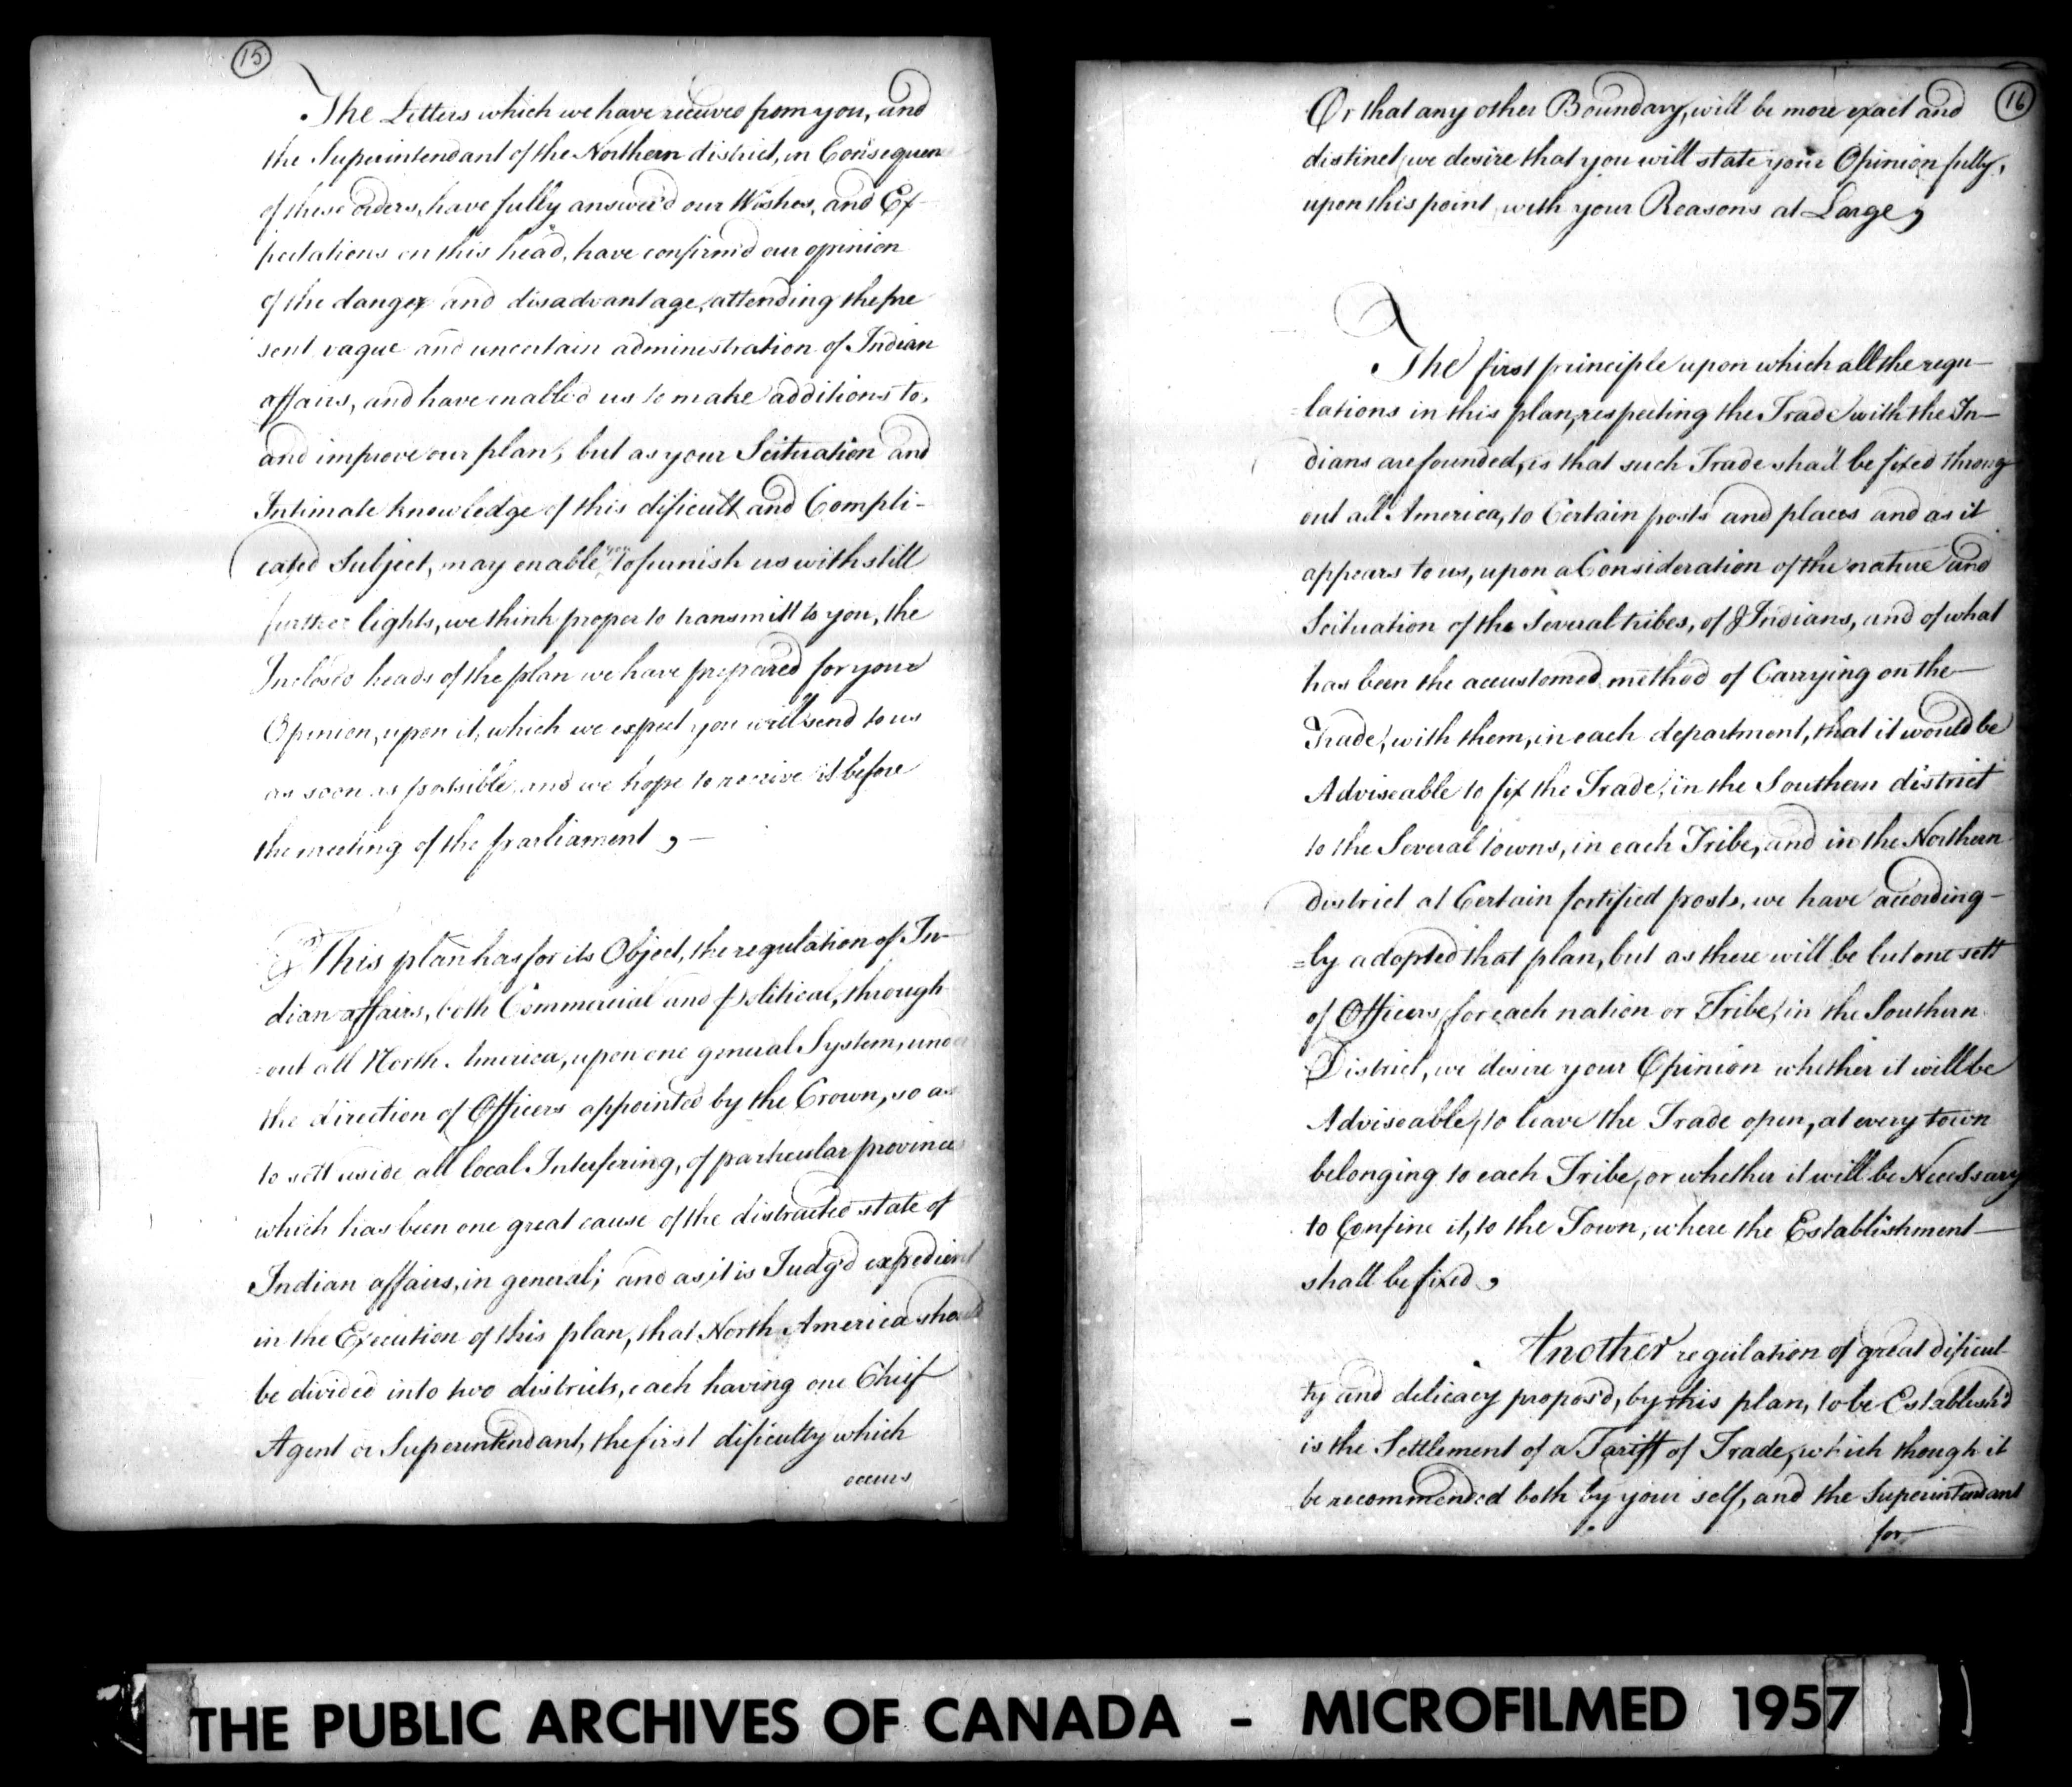 15
The Letters which we have received from you, and
the Superintendant of the Northern district, in Consequen
of these orders, have fully answer'd our Wishes, and Ex-
pectations on this head, have confirm'd our opinion
of the danger and disadvantage, attending the pre
sent vague and uncertain administration of Indian
affairs, and have enabled us to make additions to,
and improve our plan, but as your Scituation and
Intimate knowledge of this dificult and Compli-
cated Subject, may enable you to furnish us with still
further lights, we think proper to transmitt to you, the
Inclosed heads of the plan we have prepared for your
Opinion, upon it, which we expect you will send to us
as soon as possible and we hope to receive it before
the meeting of the parliament, -
This plan has for its Object, the regulation of In-
dian affairs, both Commercial and political, through
=out all North America, upon one general System, under
the direction of Officers appointed by the Crown, so as
to sett aside all local Interfering, of particular province
which has been one great cause of the distracted state of
Indian affairs, in general; and as it is Judg'd expedient
in the Execution of this plan, that North America should
be divided into two districts, each having one Chief
Agent or Superintendant, the first dificulty which
occurs
16
Or that any other Boundary, will be more exact and
distinct, we desire that you will state your Opinion fully,
upon this point, with your Reasons at Large,
The first principle upon which all the regu-
=lations in this plan, respecting the Trade with the In-
dians are founded, is that such Trade shall be fixed throug
out all America, to Certain posts and places and as it
appears to us, upon a Consideration of the nature and
Scituation of the Several tribes, of Indians, and of what
has been the accustomed method of Carrying on the
Trade, with them, in each department, that it would be
Adviseable to fix the Trade, in the Southern district
to the Several towns, in each Tribe, and in the Northern
district at Certain fortified posts, we have according-
=ly adopted that plan, but as there will be but one sett
of Officers for each nation or Tribe, in the Southern
District, we desire your Opinion whether it will be
Adviseable, to leave the Trade open, at every town
belonging to each Tribe, or whether it will be Necessary
to Confine it, to the Town, where the Establishment
shall be fixed,
Another regulation of great dificul
ty and delicacy propos'd, by this plan, to be Establish'd
is the Settlement of a Tariff of Trade, which though it
be recommended both by your self, and the Superintendant
for
THE PUBLIC ARCHIVES OF CANADA - MICROFILMED 1957